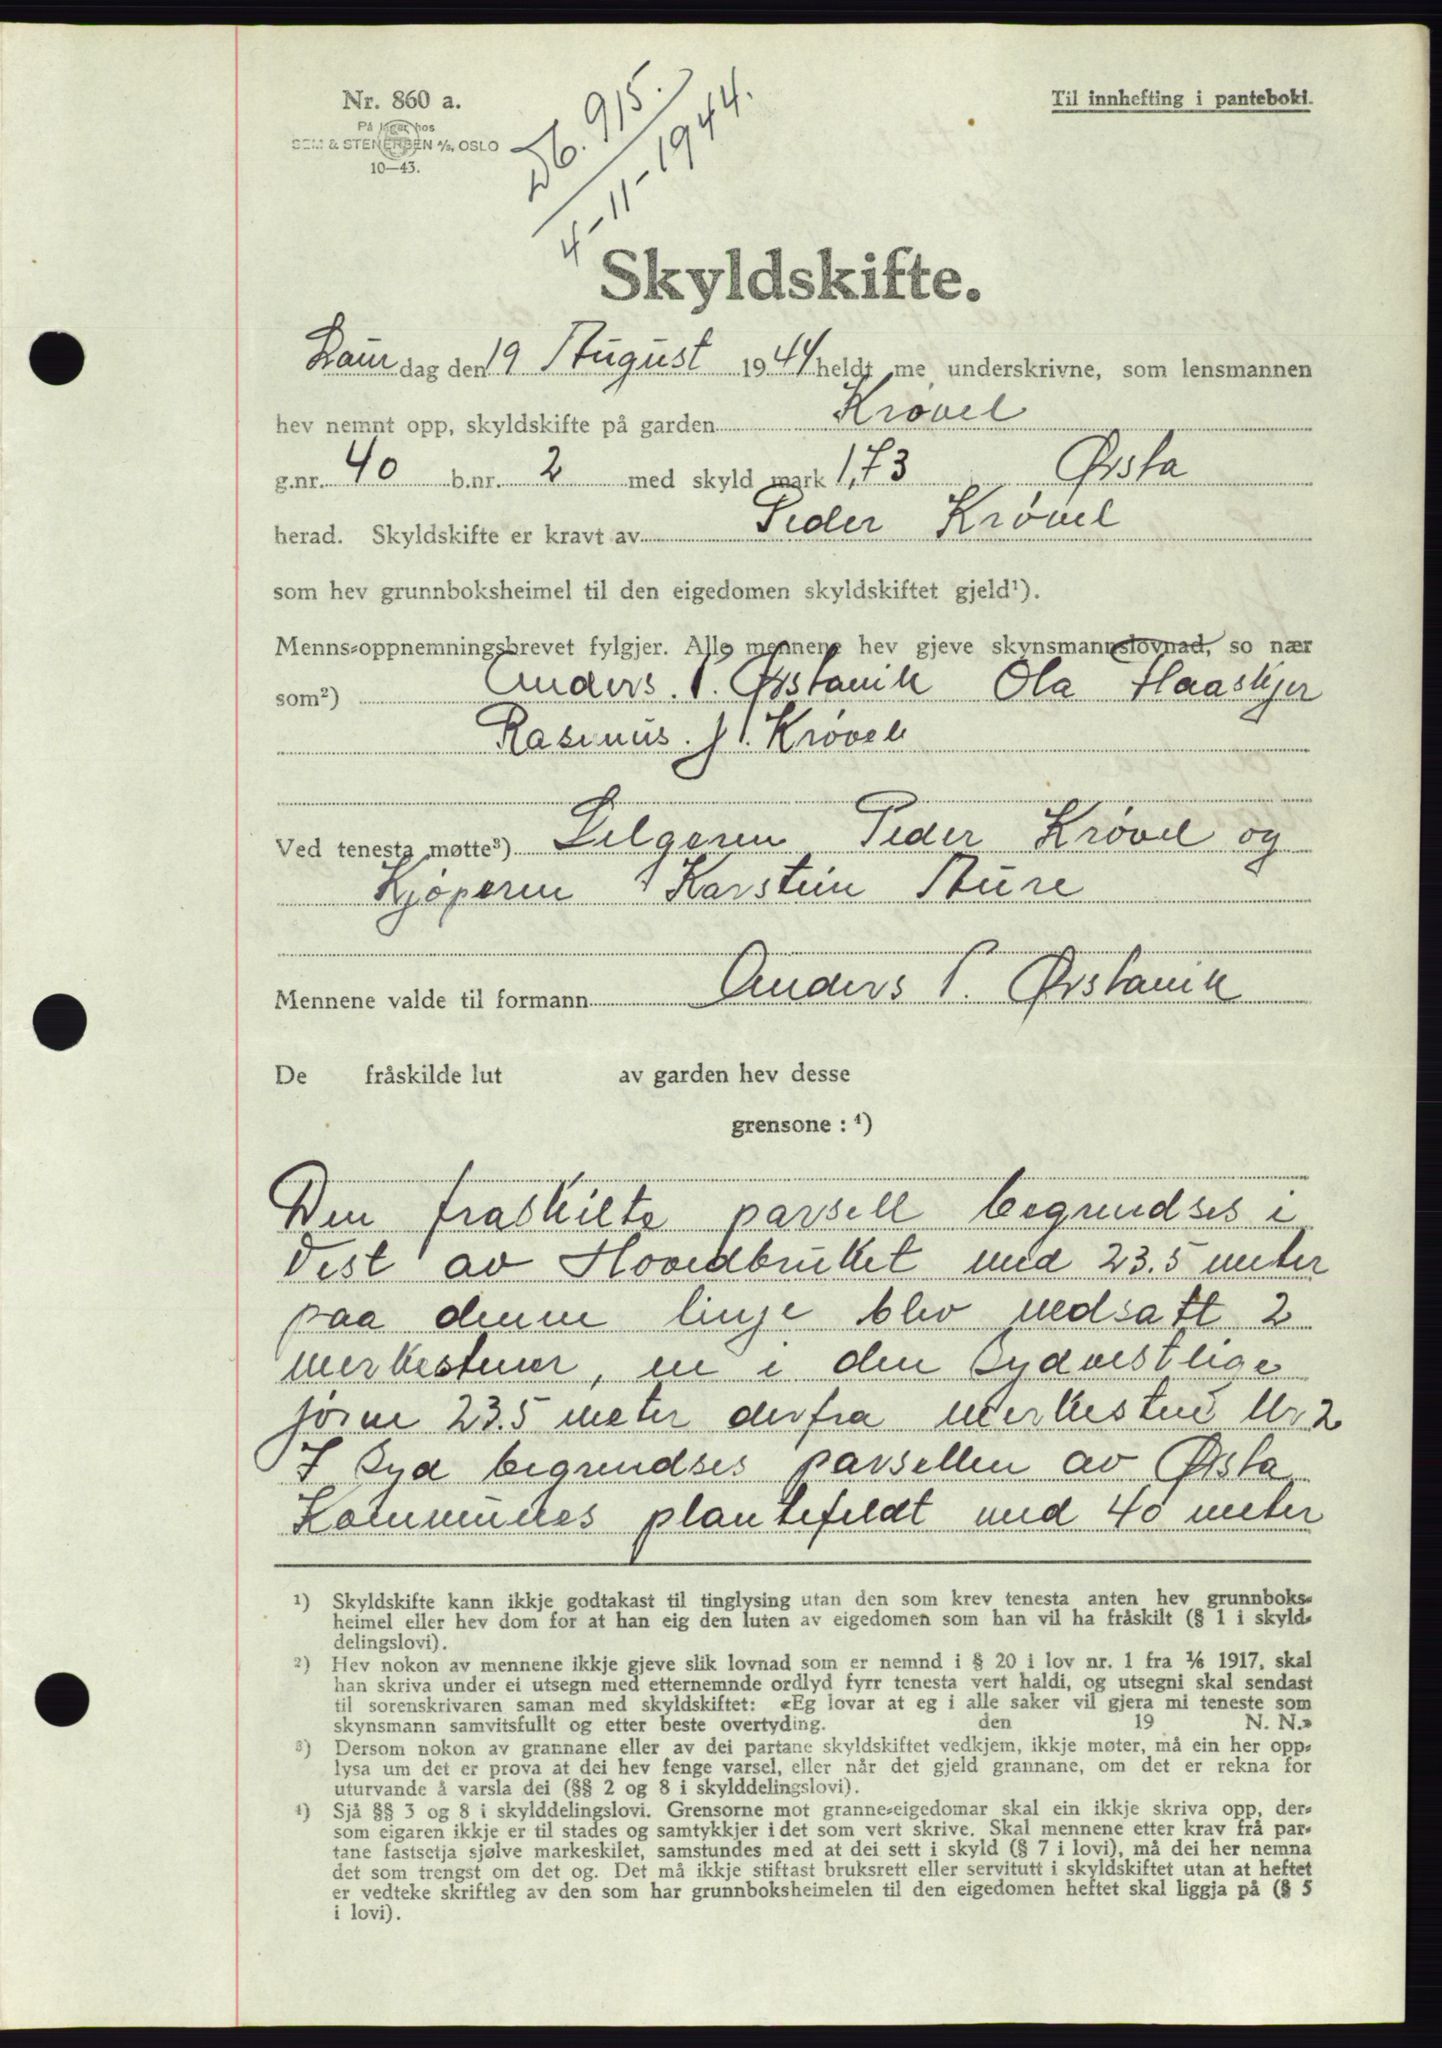 Nr. 860 a.
På lager hos
SEM & STENERSEN A/S, OSLO
10—43.
Til innhefting i panteboki.
Db. 915.
4-11-1944.
Skyldskifte.
Laurdag den 19 August 1944 heldt me underskrivne, som lensmannen
hev nemnt opp, skyldskifte på garden Krøvel
g.nr. 40 b.nr. 2 med skyld mark 1,73 Ørsta
herad. Skyldskifte er kravt av Peder Krøvel
som hev grunnboksheimel til den eigedomen skyldskiftet gjeld¹).
Menns-oppnemningsbrevet fylgjer. Alle mennene hev gjeve skynsmannslovnad, so nær
som²) Anders. P. Ørstavik Ola Haaskjer
Rasmus. J. Krøvel
Ved tenesta møtte³) Selgeren Peder Krøvel og
Kjøperen Karstein Aure
Mennene valde til formann Anders P. Ørstavik
De fråskilde lut av garden hev desse
grensone : ⁴)
Den fraskilte parsell begrendses i
Vest av Hovedbruket med 23.5 meter
paa denne linje blev nedsatt 2
merkestener, en i den Sydvestlige
jørne 23.5 meter derfra merkestene Nr 2
I Syd begrendses parsellen av Ørsta
Kommunes plantefeldt med 40 meter
¹) Skyldskifte kann ikkje godtakast til tinglysing utan den som krev tenesta anten hev grunnboks-
heimel eller hev dom for at han eig den luten av eigedomen som han vil ha fråskilt (§ 1 i skyld-
delingslovi).
²) Hev nokon av mennene ikkje gjeve slik lovnad som er nemnd i § 20 i lov nr. 1 fra ⅙ 1917, skal
han skriva under ei utsegn med etternemnde ordlyd fyrr tenesta vert haldi, og utsegni skal sendast
til sorenskrivaren saman med skyldskiftet: «Eg lovar at eg i alle saker vil gjera mi teneste som
skynsmann samvitsfullt og etter beste overtyding. den 19 N. N.»
³) Dersom nokon av grannane eller av dei partane skyldskiftet vedkjem, ikkje møter, må ein her opp-
lysa um det er prova at dei hev fenge varsel, eller når det gjeld grannane, om det er rekna for
uturvande å varsla dei (§§ 2 og 8 i skylddelingslovi).
⁴) Sjå §§ 3 og 8 i skylddelingslovi. Grensorne mot granne-eigedomar skal ein ikkje skriva opp, der-
som eigaren ikkje er til stades og samtykkjer i det som vert skrive. Skal mennene etter krav frå par-
tane fastsetja sjølve markeskilet, samstundes med at dei sett i skyld (§ 7 i lovi), må dei her nemna
det som trengst om det og. Det må ikkje stiftast bruksrett eller servitutt i skyldskiftet utan at heftet
er vedteke skriftleg av den som har grunnboksheimelen til den eigedomen heftet skal liggja på (§ 5
i lovi).